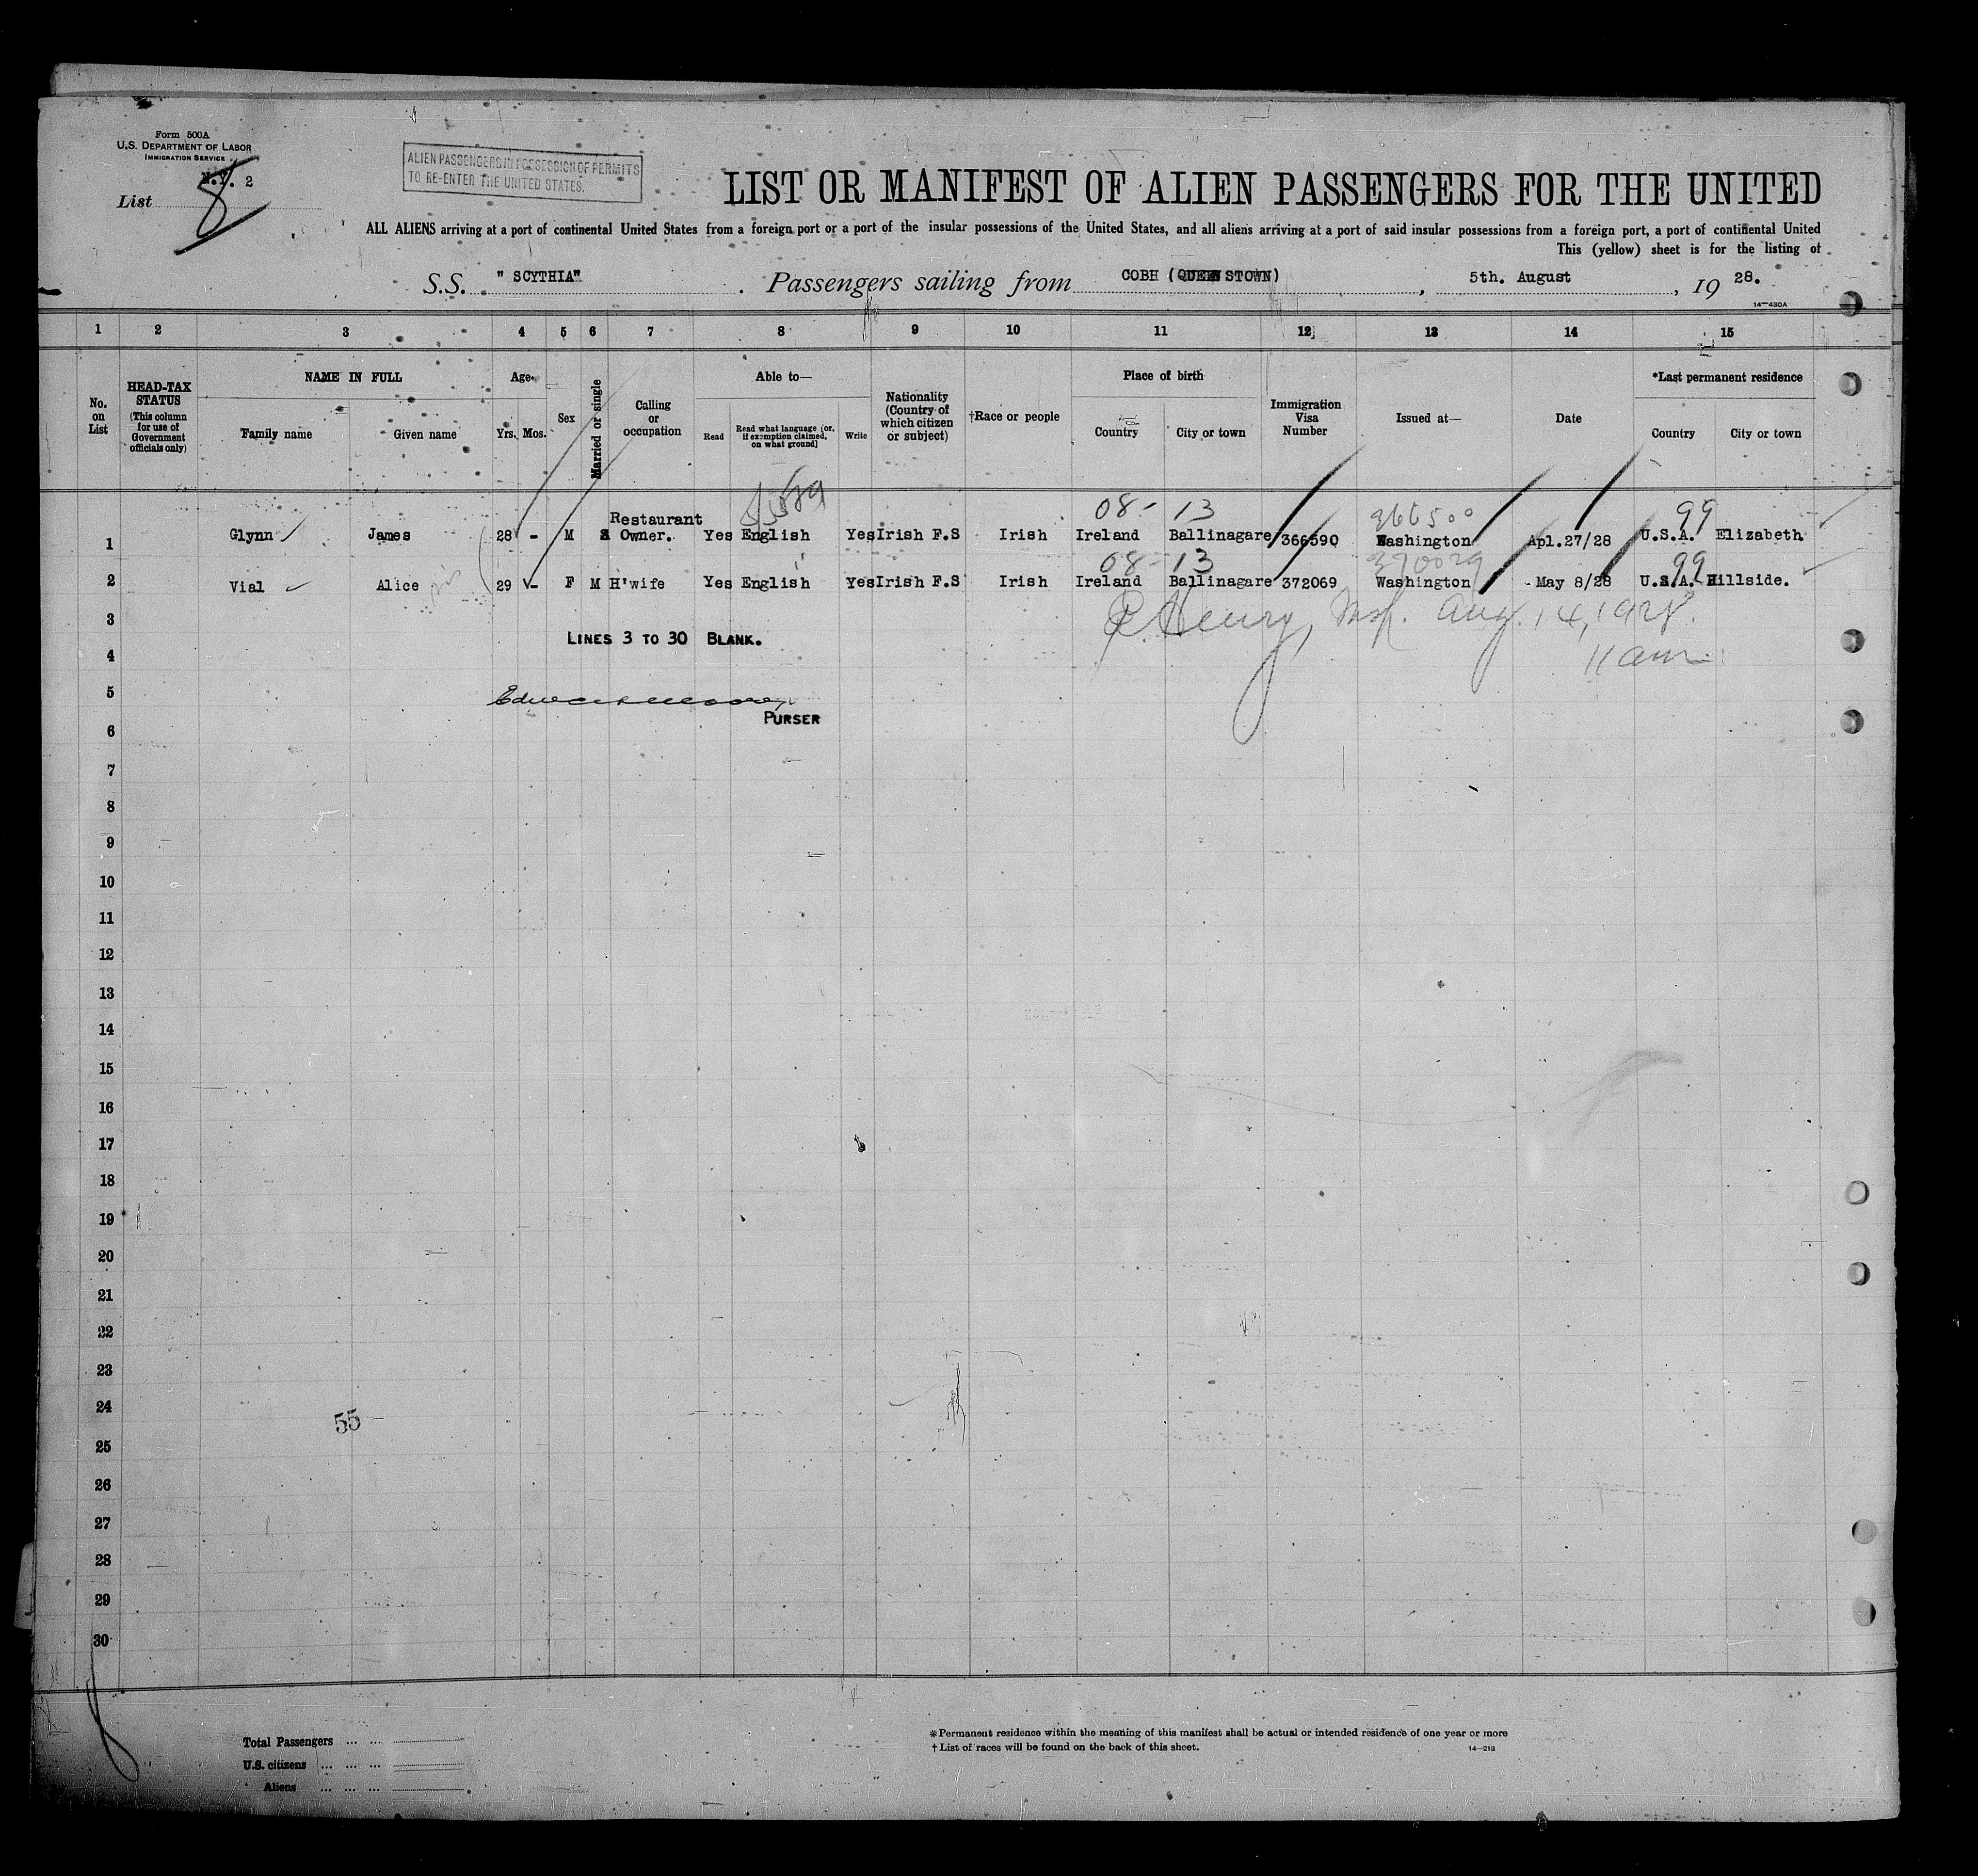 Form 500A
U.S. DEPARTMENT OF LABOR
IMMIGRATION SERVICE
N.Y. 2
List 8
ALIEN PASSENGERS IN POSSESSION OF PERMITS
TO RE-ENTER THE UNITED STATES.
LIST OR MANIFEST OF ALIEN PASSENGERS FOR THE UNITED
ALL ALIENS arriving at a port of continental United States from a foreign port or a port of the insular possessions of the United States, and all aliens arriving at a port of said insular possessions from a foreign port, a port of continental United
This (yellow) sheet is for the listing of
S.S. "SCYTHIA". Passengers sailing from COBH (QUEENSTOWN), 5th. August, 19 28.
14—430A
1 2 3 4 5 6 7 8 9 10 11 12 13 14 15
No. on List
HEAD-TAX STATUS (This column for use of Government officials only)
NAME IN FULL
Family name
Given name
Age
Yrs. Mos.
Sex
Married or single
Calling or occupation
Able to—
Read
Read what language [or, if exemption claimed, on what ground]
Write
Nationality (Country of which citizen or subject)
†Race or people
Place of birth
Country
City or town
Immigration Visa Number
Issued at—
Date
*Last permanent residence
Country
City or town
08- 13 366500 99
1 Glynn James 28 - M S Restaurant Owner. Yes English Yes Irish F.S Irish Ireland Ballinagare 366590 Washington Apl.27/28 U.S.A. Elizabeth
08- 13 99
2 Vial Alice 29 - F M H'wife Yes English Yes Irish F.S Irish Ireland Ballinagare 372069 Washington May 8/28 U.S.A. Hillside.
Henry, Insp. Aug. 14, 1928.
11 am
3
LINES 3 TO 30 BLANK.
4
5
PURSER
6
7
8
9
10
11
12
13
14
15
16
17
18
19
20
21
22
23
24
55
25
26
27
28
29
30
Total Passengers ... ...
U.S. citizens ... ... ...
Aliens ... ... ...
*Permanent residence within the meaning of this manifest shall be actual or intended residence of one year or more
†List of races will be found on the back of this sheet.
14—213